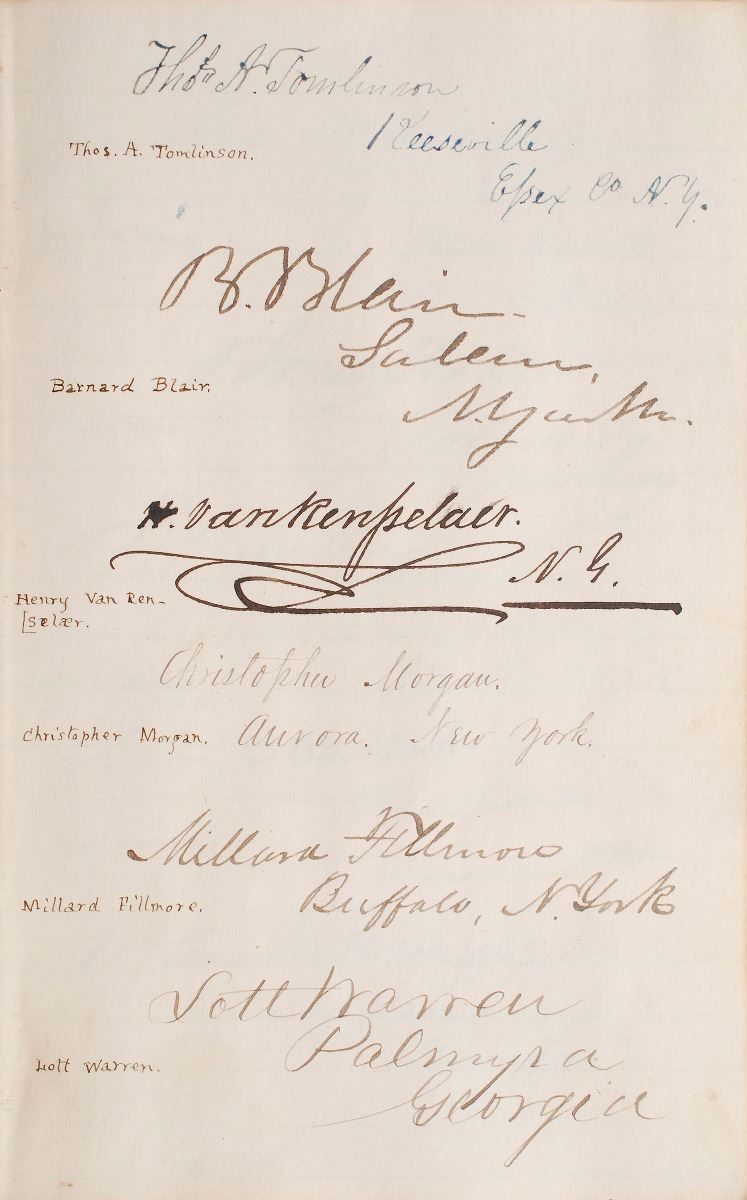 Thos A. Tomlinson
Keeseville
Thos. A. Tomlinson.
Essex Co N.Y.
B. Blair
Salem,
Barnard Blair.
N. York.
H. Van Rensselaer.
N.Y.
Henry Van Ren-
[selær.
Christopher Morgan.
Christopher Morgan.
Aurora. New York.
Millard Fillmore
Millard Fillmore.
Buffalo, N. York
Lott Warren
Palmyra
Lott Warren.
Georgia